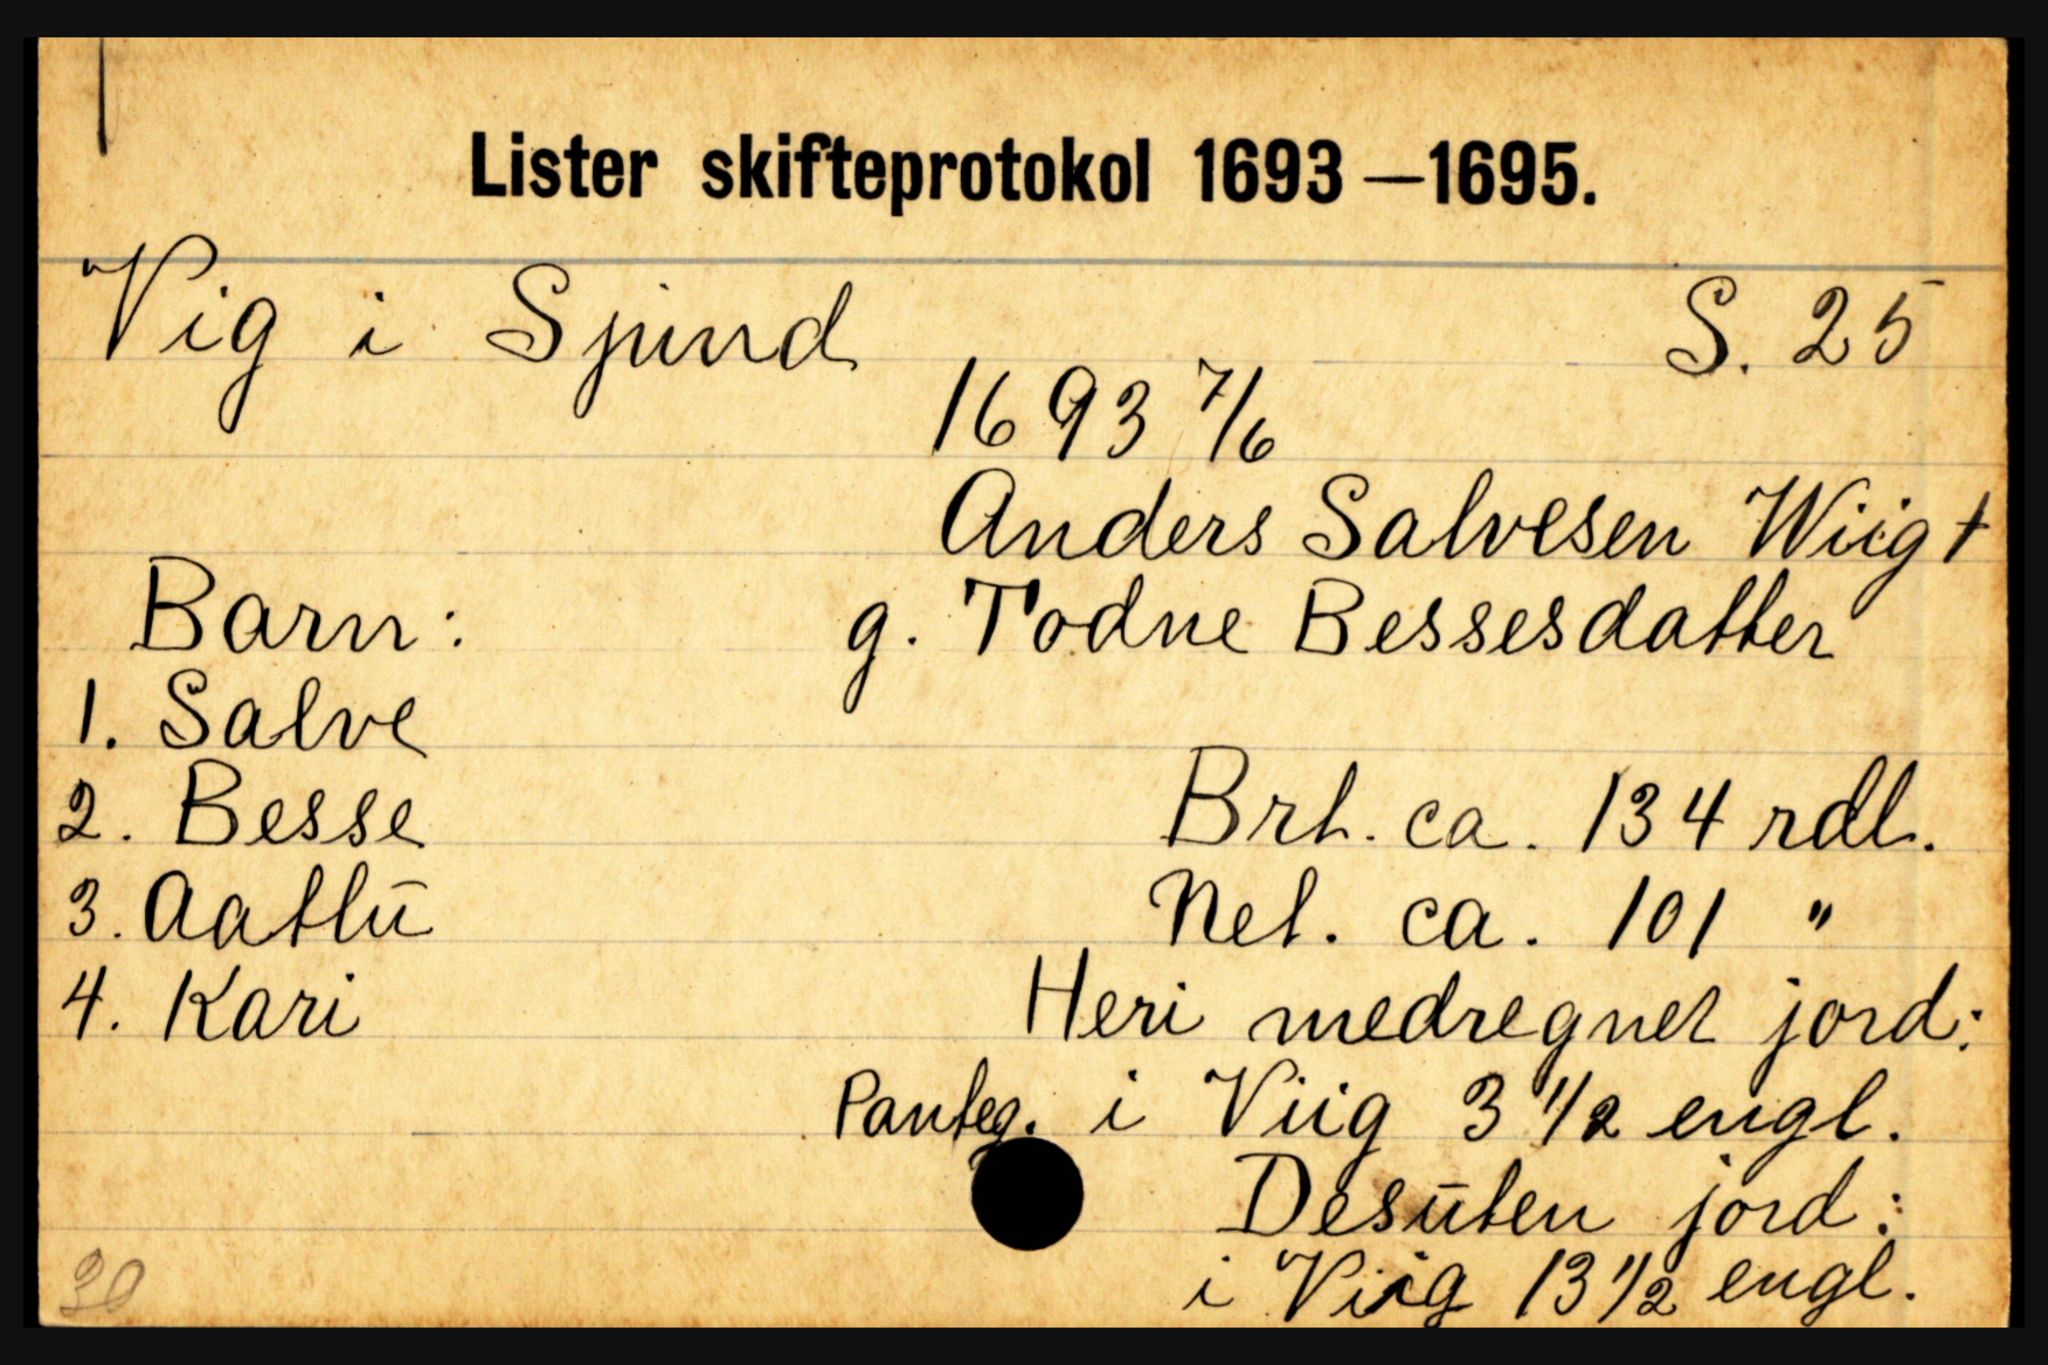 Lister skifteprotokol 1693—1695.
Vig i Spind S. 25
1693 7/6
Anders Salvesen Wiig †
Barn: g. Todne Bessesdatter
1. Salve
2. Besse Brt. ca. 134 rdl.
3. Aatlū Net. ca. 101 "
4. Kari Heri medregnet jord:
Panteg. i Viig 3 1/2 engl.
Desūten jord:
i Viig 13 1/2 engl.
30